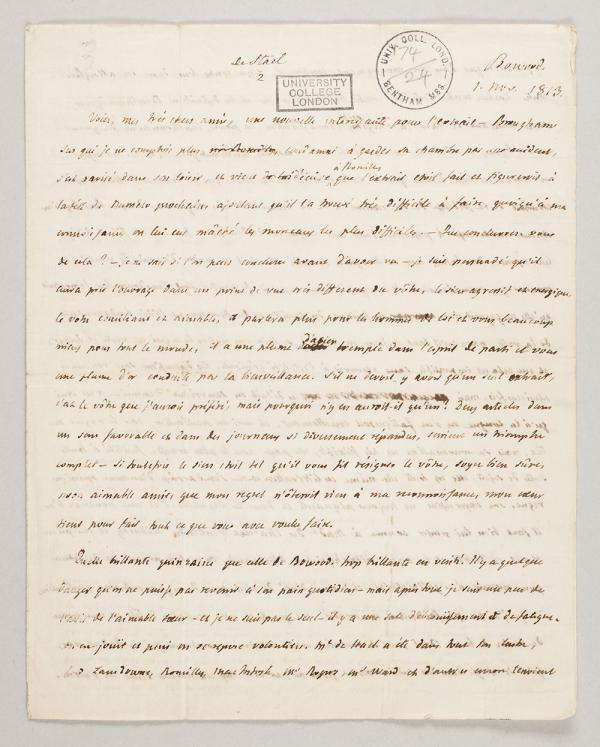 de Stael
2
UNIVERSITY
COLLEGE
LONDON
UNIV. COLL. LOND.
74
24
BENTHAM MSS.
Bowood
1. Nov. 1813.
Voici, ma très chere amie, une nouvelle interessante pour l'extrait – Brougham
sur qui je ne comptois plus, condamné à garder sa chambre par un accident,
s'est ravisé dans son loisir, et vient d'ecrire à Romilly que l'extrait etoit fait et figureroit à
la tête du Numéro prochain ajoutant qu'il l'a trouvé très difficile à faire, quoiqu'à ma
connoissance on lui eut mâché les morceaux les plus difficiles. – Que conclurez vous
de cela? – je ne sais si l'on peut conclure avant d'avoir vu – je suis persuadé qu'il
aura pris l'ouvrage dans un point de vue très different du vôtre, le sien agressif et energique,
le votre conciliant et aimable, il parlera plus pour les hommes de loi et vous beaucoup
mieux pour tout le monde, il a une plume d'acier trempée dans l'esprit de parti et vous
une plume d'or conduite par la bienveillance. S'il ne devoit y avoir qu'un seul extrait,
c'est le vôtre que j'aurois préféré, mais pourquoi n'y en auroit-il qu'un? Deux articles dans
un sens favorable et dans des journaux si diversement répandus, seroient un triomphe
complet – Si toutefois le sien etoit tel qu'il vous fit résigner le vôtre, soyez bien sûre,
mon aimable amie, que mon regret n'ôteroit rien à ma reconnoissance, mon cœur
tient pour fait tout ce que vous avez voulu faire.
Quelle brillante quinzaine que celle de Bowood: trop brillante en verité. Il y a quelque
danger qu'on ne puisse pas revenir à son pain quotidien – mais après tout je suis un peu de
l'avis de l'aimable sœur – et je ne suis pas le seul – il y a une sorte d'eblouissement et de fatigue.
on en jouit et puis on se repose volontiers. Me de Stael a été dans tout son lustre,
Lord Lansdowne, Romilly, Mackintosh, Mr Rogers, Mr Ward et d'autres encore